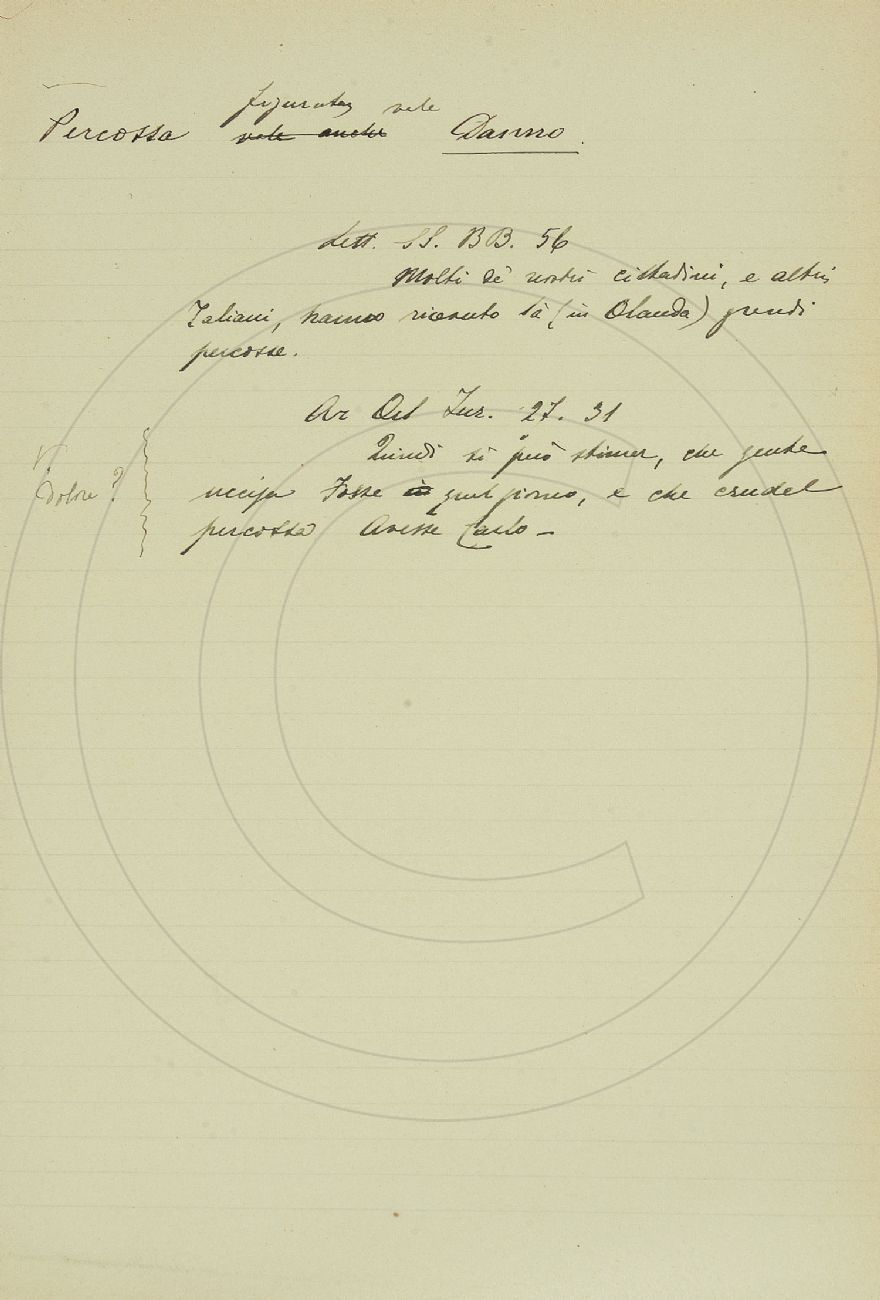 figuratam vale
Percossa vale anche Danno.
Lett. SS. BB. 56
Molti de' nostri cittadini, e altri
Italiani, hanno ricevuto là (in Olanda) grandi
percosse.
Ar Orl Fur. 27. 31
Quindi si può stimar, che gente
uccisa Fosse in quel giorno, e che crudel
Dolore?
percossa Avesse Carlo —